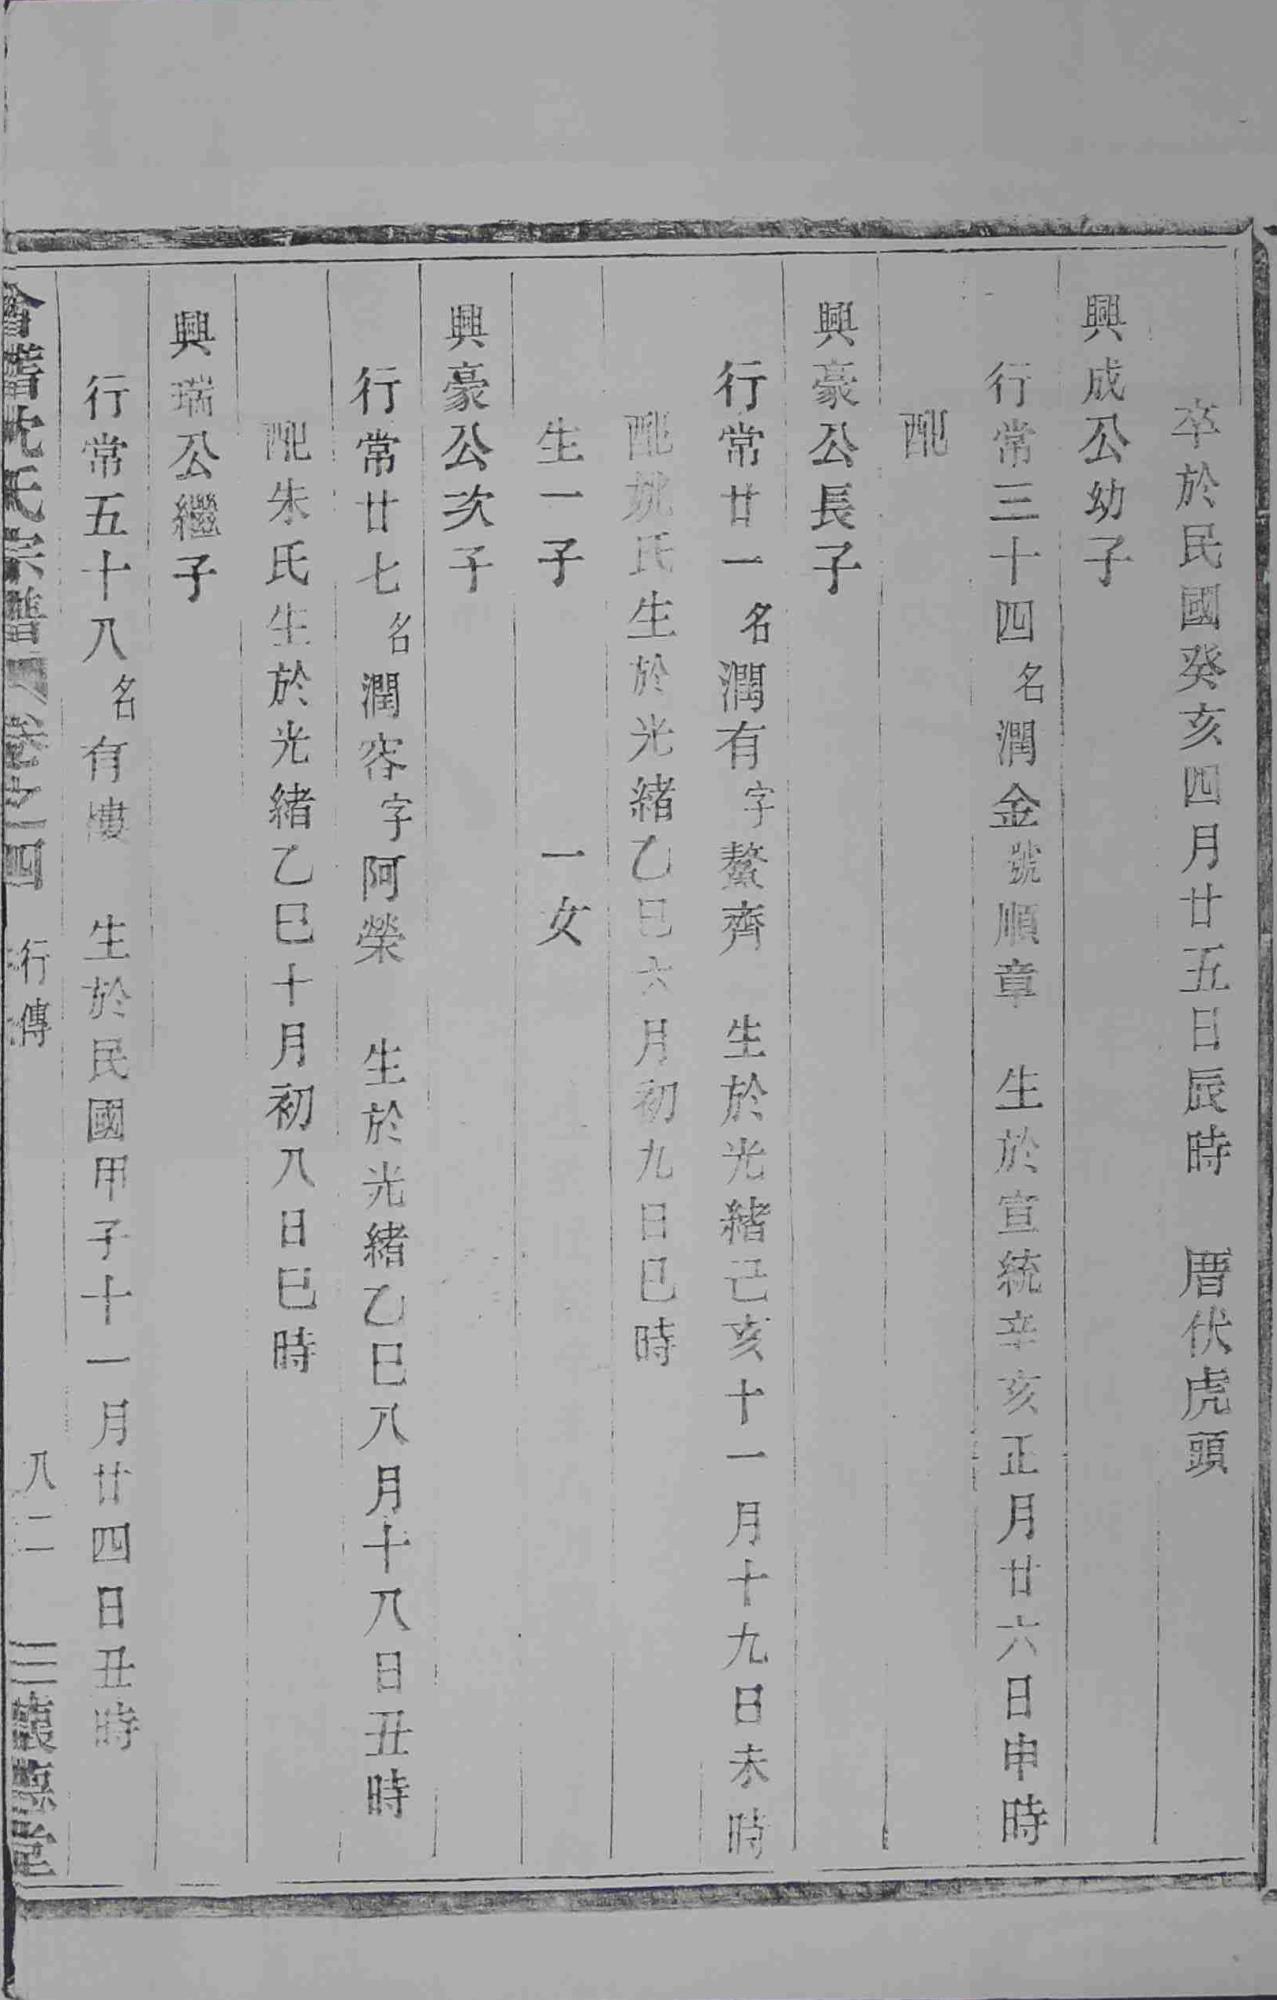 卒於民國癸亥四月廿五日辰時　厝伏虎頭
興成公幼子
行常三十四名潤金號順章　生於宣統辛亥正月廿六日申時
配
興豪公長子
行常廿一名潤有字鰲齊　生於光緒己亥十一月十九日未時
配姚氏生於光緒乙巳六月初九日巳時
生一子　　一女
興豪公次子
行常廿七名潤容字阿榮　生於光緒乙巳八月十八日丑時
配朱氏生於光緒乙巳十月初八日巳時
興瑞公繼子
行常五十八名有樓　生於民國甲子十一月廿四日丑時
會稽沈氏宗譜　卷之四　行傳　八二　三讓懋堂